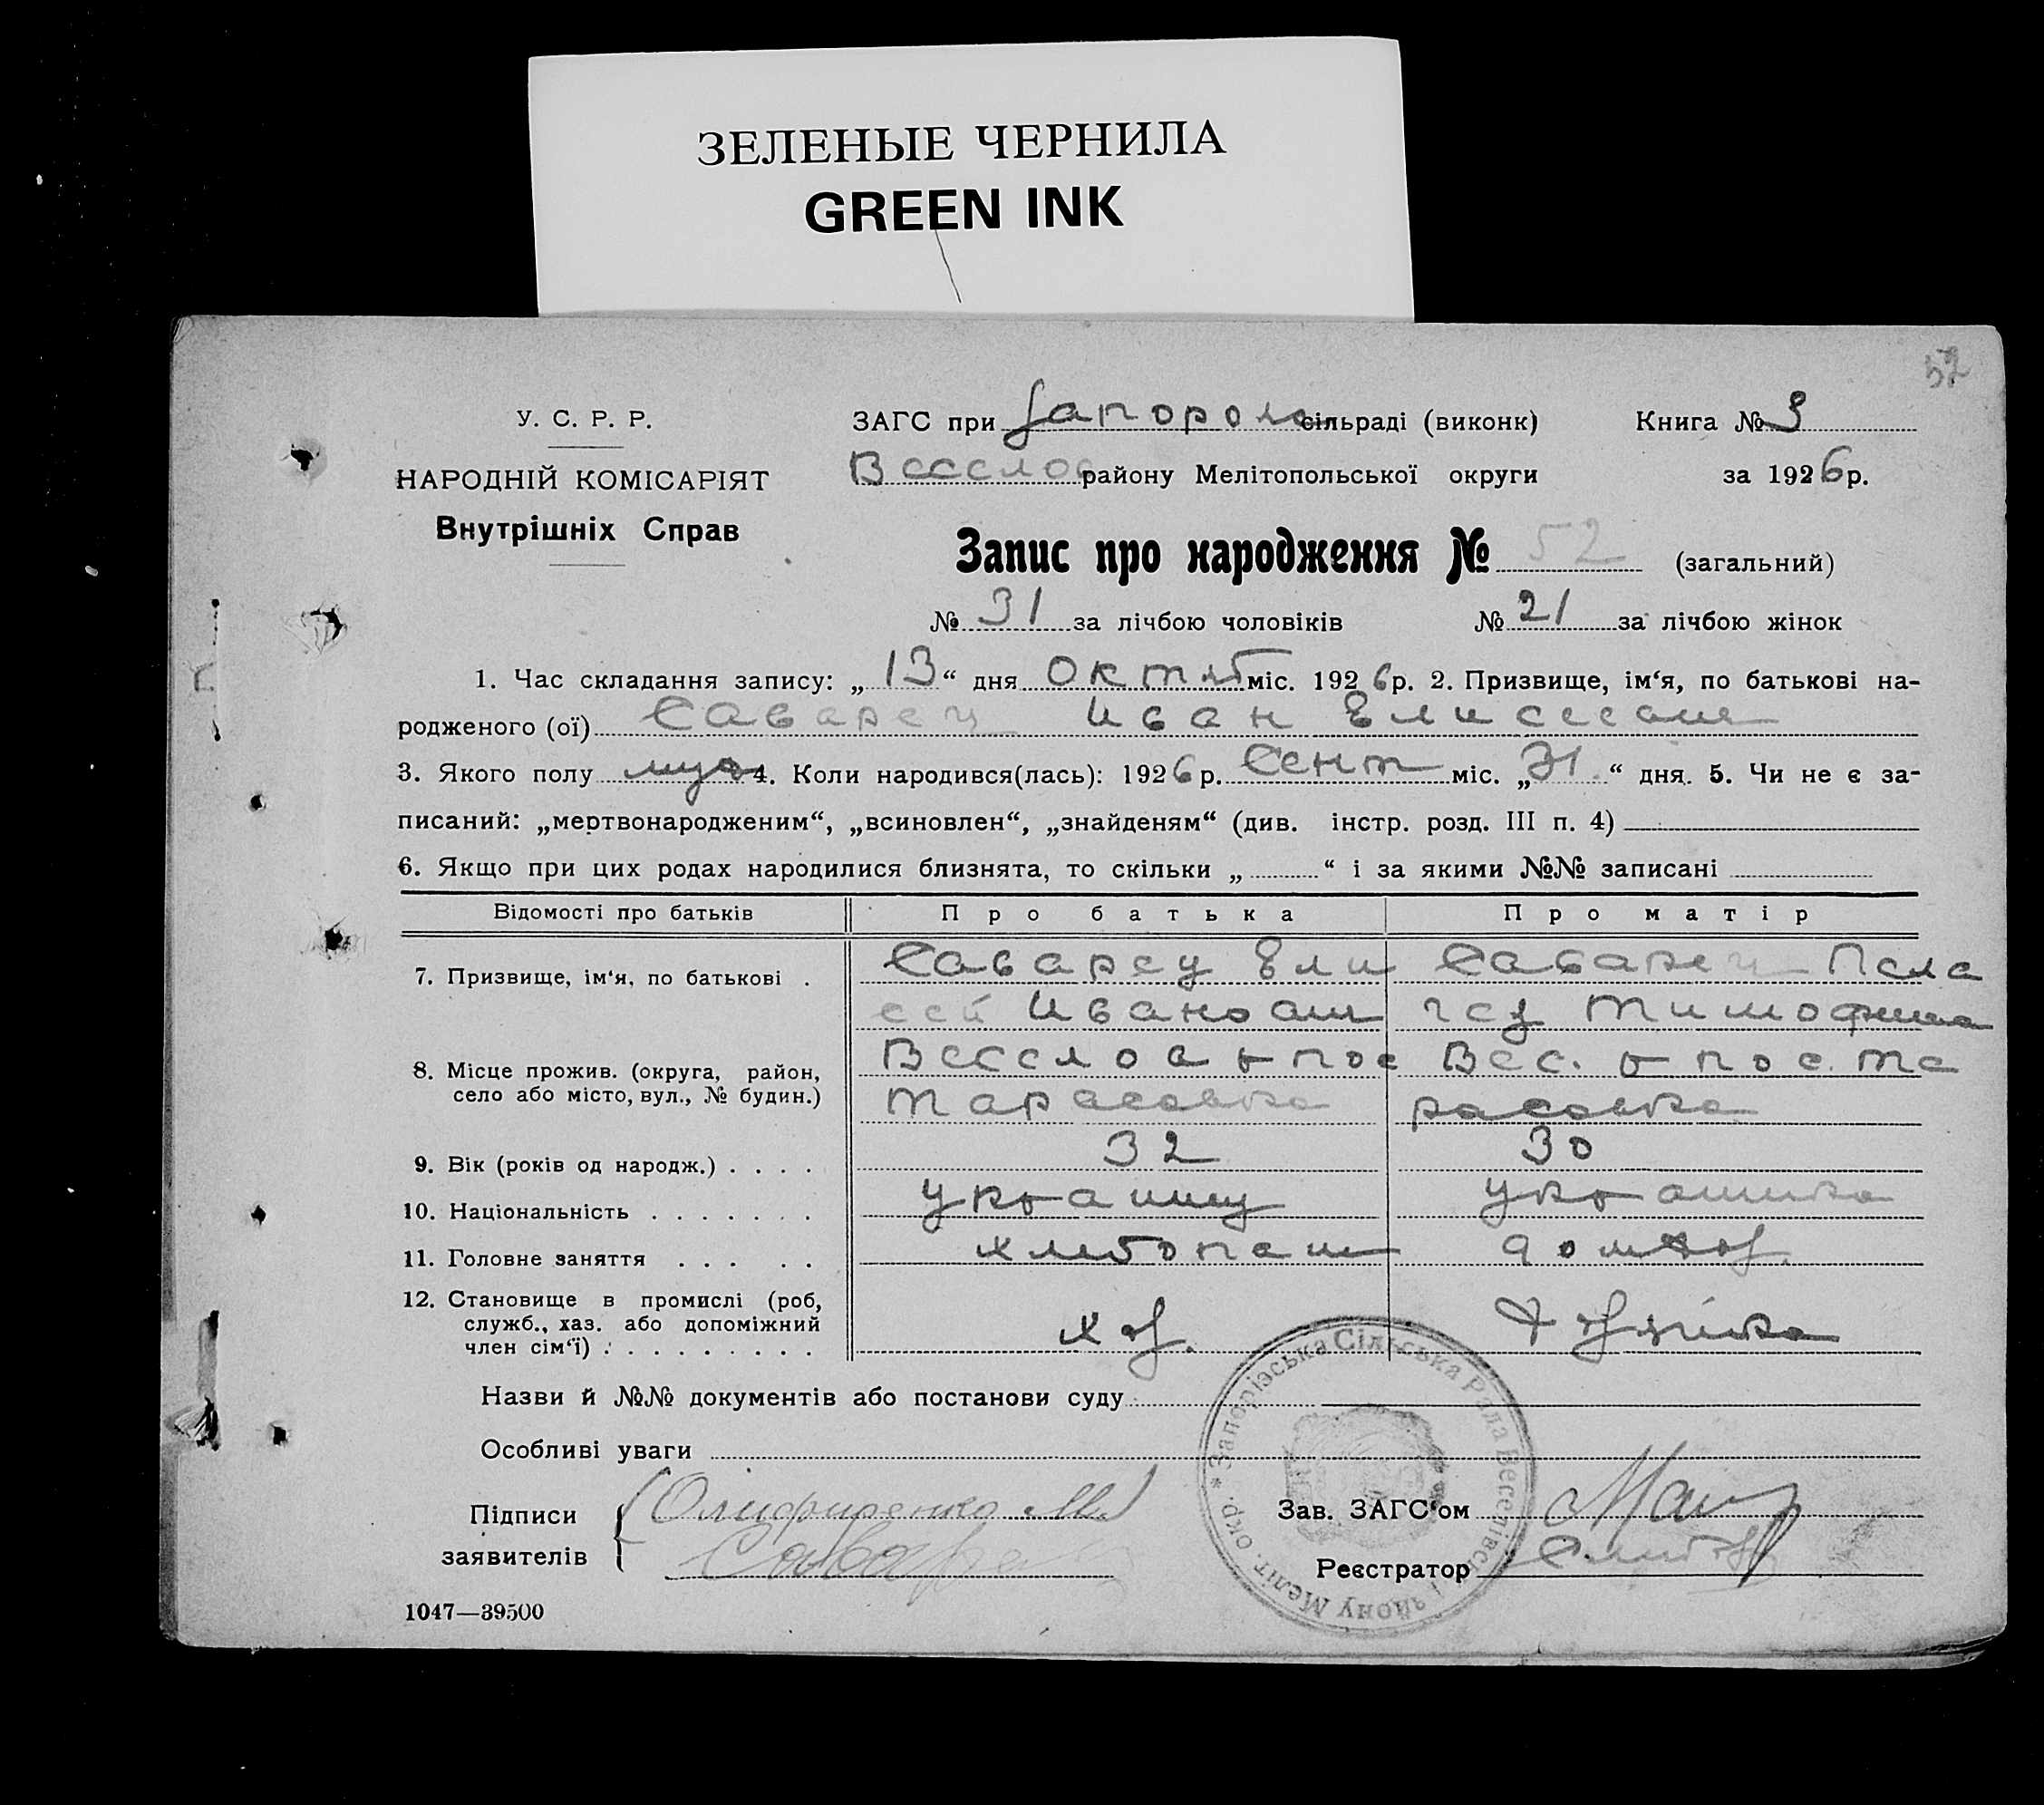 ЗЕЛЕНЫЕ ЧЕРНИЛА
GREEN INK
52
У. С. Р. Р.
НАРОДНІЙ КОМІСАРІЯТ
Внутрішніх Справ
ЗАГС при Запорож сільраді (виконк) Книга № 3
Веселов району Мелітопольської округи за 1926 р.
Запис про народження № 52 (загальний)
№ 31 за лічбою чоловіків № 21 за лічбою жінок
1. Час складання запису: „13“ дня Октяб міс. 1926 р. 2. Призвище, ім‘я, по батькові на-
родженого (ої) Саварец Иван Елисееаич
3. Якого полу муж 4. Коли народився(лась): 1926 р. Сент міс. „31“ дня. 5. Чи не є за-
писаний: „мертвонародженим“, „всиновлен“, „знайденям“ (див. інстр. розд. III п. 4)
6. Якщо при цих родах народилися близнята, то скільки „ “ і за якими №№ записані
Відомості про батьків Про батька Про матір
7. Призвище, ім‘я, по батькові . Саварец Ели Саварец Пела
сей Иваноаич гея Тимофиеа
8. Місце прожив. (округа, район, Веселов р пос Вес. р пос. Та
село або місто, вул., № будин.) Тарасовка расовка
9. Вік (років од народж.) . . . . 32 30
10. Національність . . . . . . . украинц украинка
11. Головне заняття . . . . . хлебопаш домхоз.
12. Становище в промислі (роб,
служб., хаз. або допоміжний хоз.
член сім‘ї) . . . . . . . . . .
Назви й №№ документів або постанови суду
Особливі уваги
Підписи (Олифиренко М.) Зав. ЗАГС‘ом
заявителів Саварец Реєстратор
* Запорізська Сільська Рада Веселівськ району Меліт. окр.
1047—39500